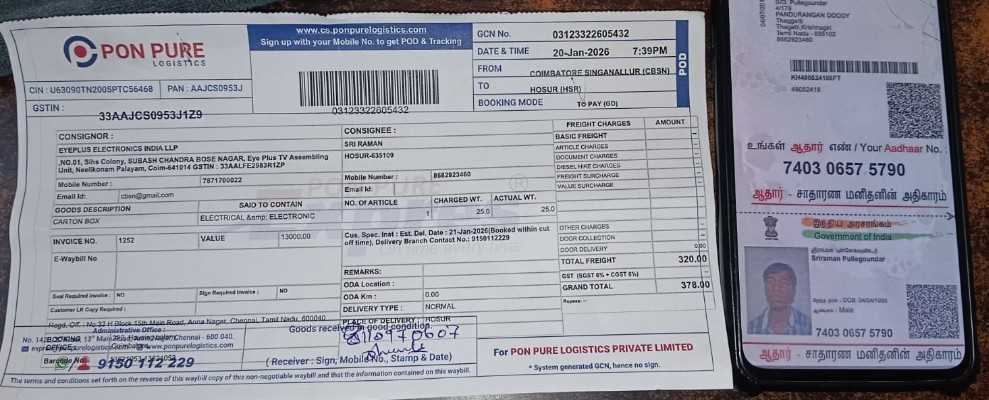 PON PURE
LOGISTICS
www.cs.ponpurelogistics.com
Sign up with your Mobile No. to get POD & Tracking
CIN : U63090TN2005PTC56468 PAN : AAJCS0953J
GSTIN : 33AAJCS0953J1Z9
03123322605432
GCN No. 03123322605432
DATE & TIME 20-Jan-2026 7:39PM
FROM COIMBATORE SINGANALLUR (CBSN)
TO HOSUR (HSR)
BOOKING MODE TO PAY (GD)
POD
CONSIGNOR :
EYEPLUS ELECTRONICS INDIA LLP
,NO.01, Sihs Colony, SUBASH CHANDRA BOSE NAGAR, Eye Plus TV Assembling
Unit, Neelikonam Palayam, Coim-641014 GSTIN : 33AALFE2983R1ZP
Mobile Number : 7871700022
Email Id: cbsn@gmail.com
GOODS DESCRIPTION SAID TO CONTAIN
CARTON BOX ELECTRICAL &amp; ELECTRONIC
INVOICE NO. 1252 VALUE 13000.00
E-Waybill No
Seal Required Invoice : NO Sign Required Invoice : NO
Customer LR Copy Required :
CONSIGNEE :
SRI RAMAN
HOSUR-635109
Mobile Number : 8682923460
Email Id:
NO. OF ARTICLE CHARGED WT. ACTUAL WT.
1 25.0 25.0
Cus. Spec. Inst : Est. Del. Date : 21-Jan-2026(Booked within cut
off time), Delivery Branch Contact No.: 9150112229
REMARKS:
ODA Location :
ODA Km : 0.00
DELIVERY TYPE : NORMAL
PLACE OF DELIVERY : HOSUR
FREIGHT CHARGES AMOUNT
BASIC FREIGHT
ARTICLE CHARGES
DOCUMENT CHARGES
DIESEL HIKE CHARGES
FREIGHT SURCHARGE
VALUE SURCHARGE
OTHER CHARGES
DOOR COLLECTION
DOOR DELIVERY 0.00
TOTAL FREIGHT 320.00
GST (SGST 6% + CGST 6%)
GRAND TOTAL 378.00
Rupees: --
Regd. Off. : No.33 H Block 15th Main Road, Anna Nagar, Chennai, Tamil Nadu, 600040
Administrative Office :
BOOKING
OFFICE
Barcode No.
9150 112 229
Goods received in good condition.
( Receiver : Sign, Mobile No., Stamp & Date)
For PON PURE LOGISTICS PRIVATE LIMITED
* System generated GCN, hence no sign.
The terms and conditions set forth on the reverse of this waybill copy of this non-negotiable waybill and that the information contained on this waybill.
Pullegoundar
4/179
PANDURANGAN DODDY
Thaggatti
Thagatti,Krishnagiri
8682923460
உங்கள் ஆதார் எண் / Your Aadhaar No. :
7403 0657 5790
ஆதார் - சாதாரண மனிதனின் அதிகாரம்
இந்திய அரசாங்கம்
Government of India
Sriraman Pullegoundar
/ Male
7403 0657 5790
ஆதார் - சாதாரண மனிதனின் அதிகாரம்